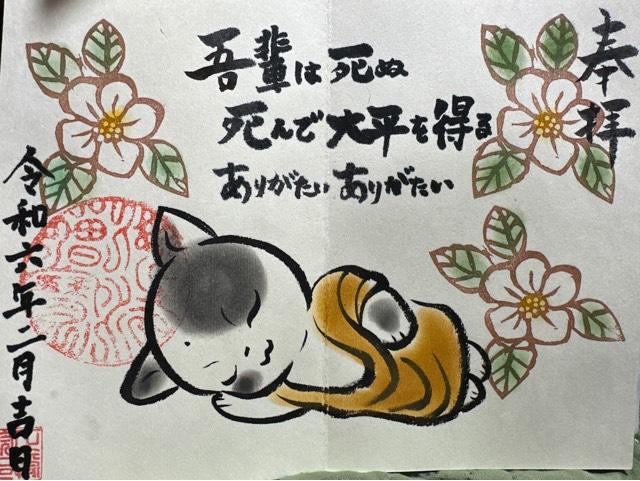 奉拝
吾輩は死ぬ
死んで大平を得る
ありがたいありがたい
令和六年二月吉日